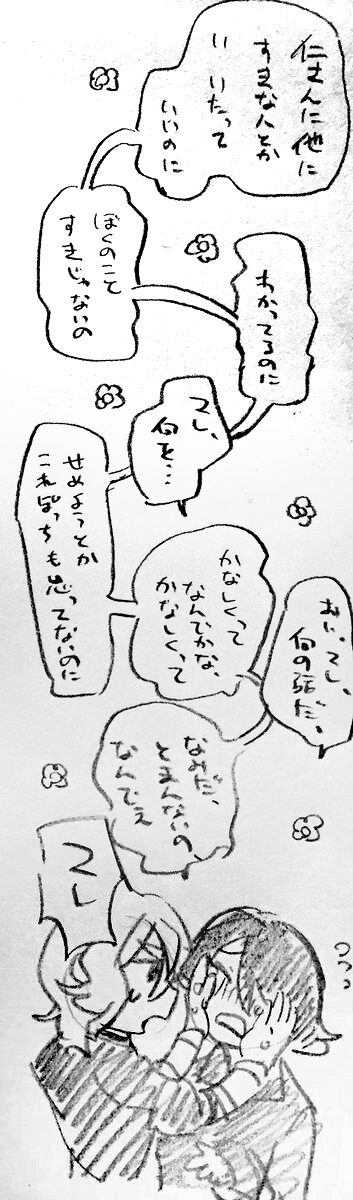 仁さんに他に
すきな人とか
い いたって
いいのに
ぼくのこと
すきじゃないの
わかってるのに
てし、
何を…
せめようとか
これぽっちも思ってないのに
かなしくって
なんでかな、
かなしくって
おい、てし、
何の話だ、
なみだ、
とまんないの
なんでぇ
てし
うっうっ